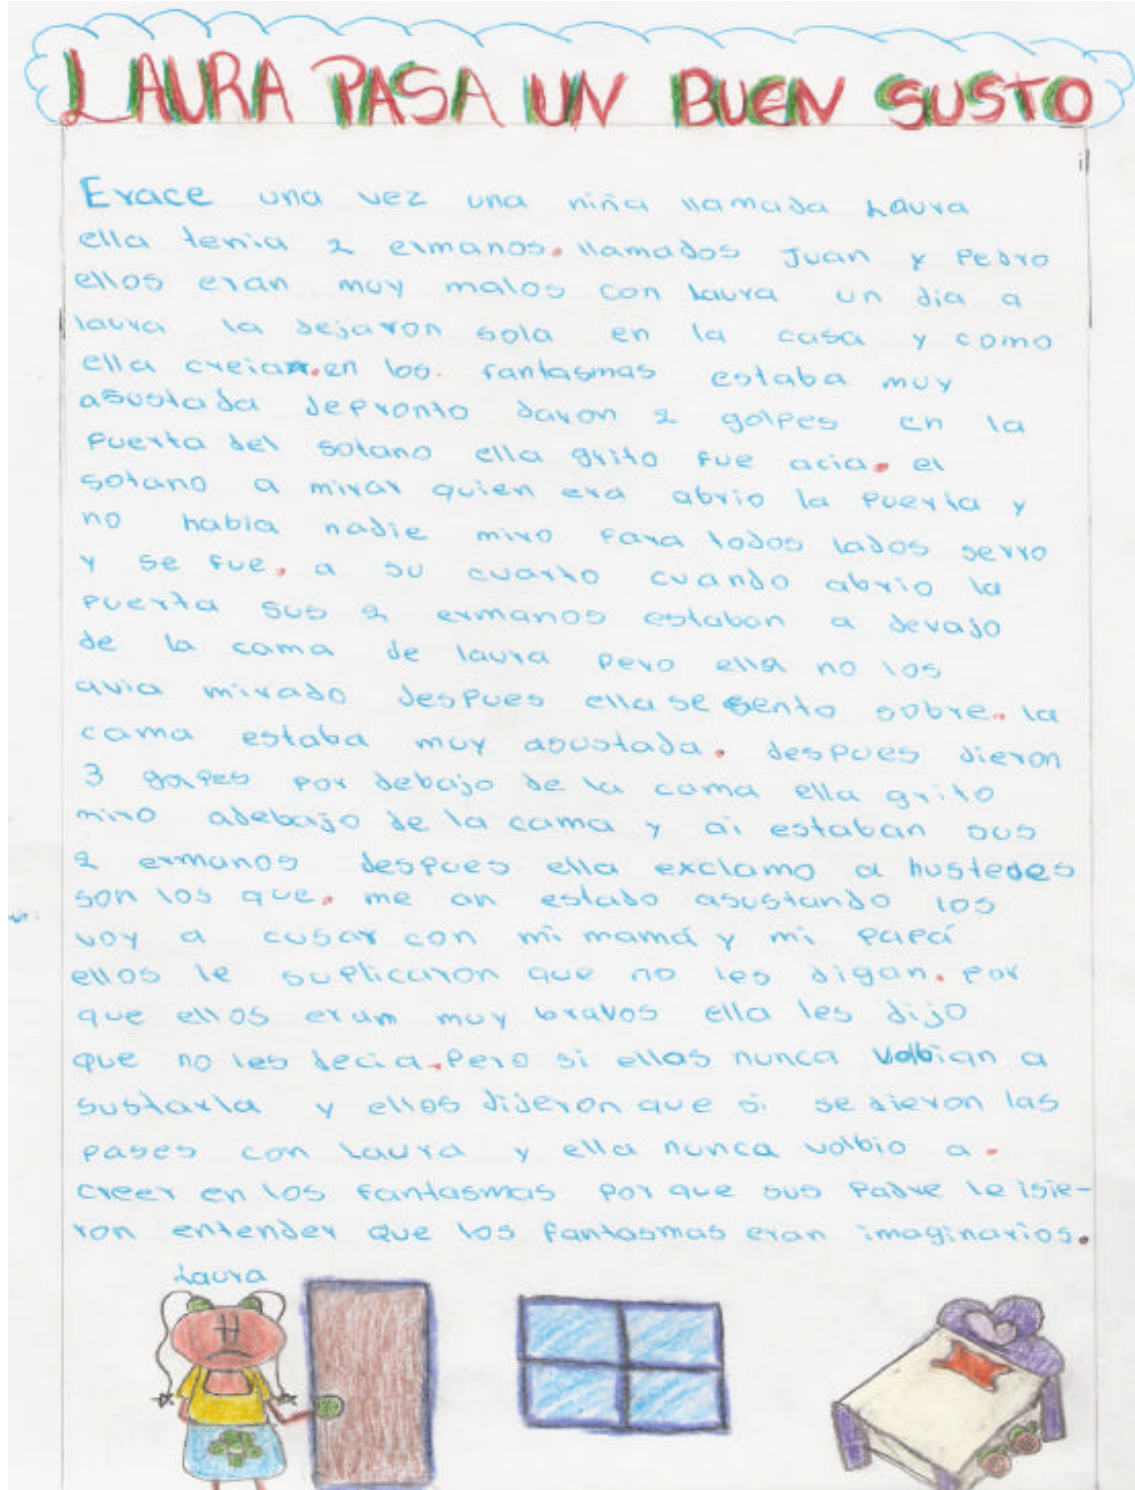 LAURA PASA UN BUEN SUSTO
Erace una vez una niña llamada Laura
ella tenia 2 ermanos. llamados Juan y Pedro
ellos eran muy malos con Laura un dia a
laura la dejaron sola en la casa y como
ella creia.en los. fantasmas estaba muy
asustada depronto daron 2 golpes en la
puerta del sotano ella grito fue acia. el
sotano a mirar quien era abrio la puerta y
no habia nadie miro para todos lados serro
y se fue. a su cuarto cuando abrio la
puerta sus 2 ermanos estaban a devajo
de la cama de laura pero ella no los
avia mirado despues ella se sento sobre. la
cama estaba muy asustada. despues dieron
3 golpes por debajo de la cama ella grito
miro adebajo de la cama y ai estaban sus
2 ermanos despues ella exclamo a hustedes
son los que. me an estado asustando los
voy a cusar con mi mamá y mi papá
ellos le suplicaron que no les digan. por
que ellos eram muy bravos ella les dijo
que no les decia.Pero si ellos nunca volbian a
sustarla y ellos dijeron que si se dieron las
pases con Laura y ella nunca volbio a.
creer en los fantasmas por que sus Padre le isie-
ron entender que los fantasmas eran imaginarios.
Laura